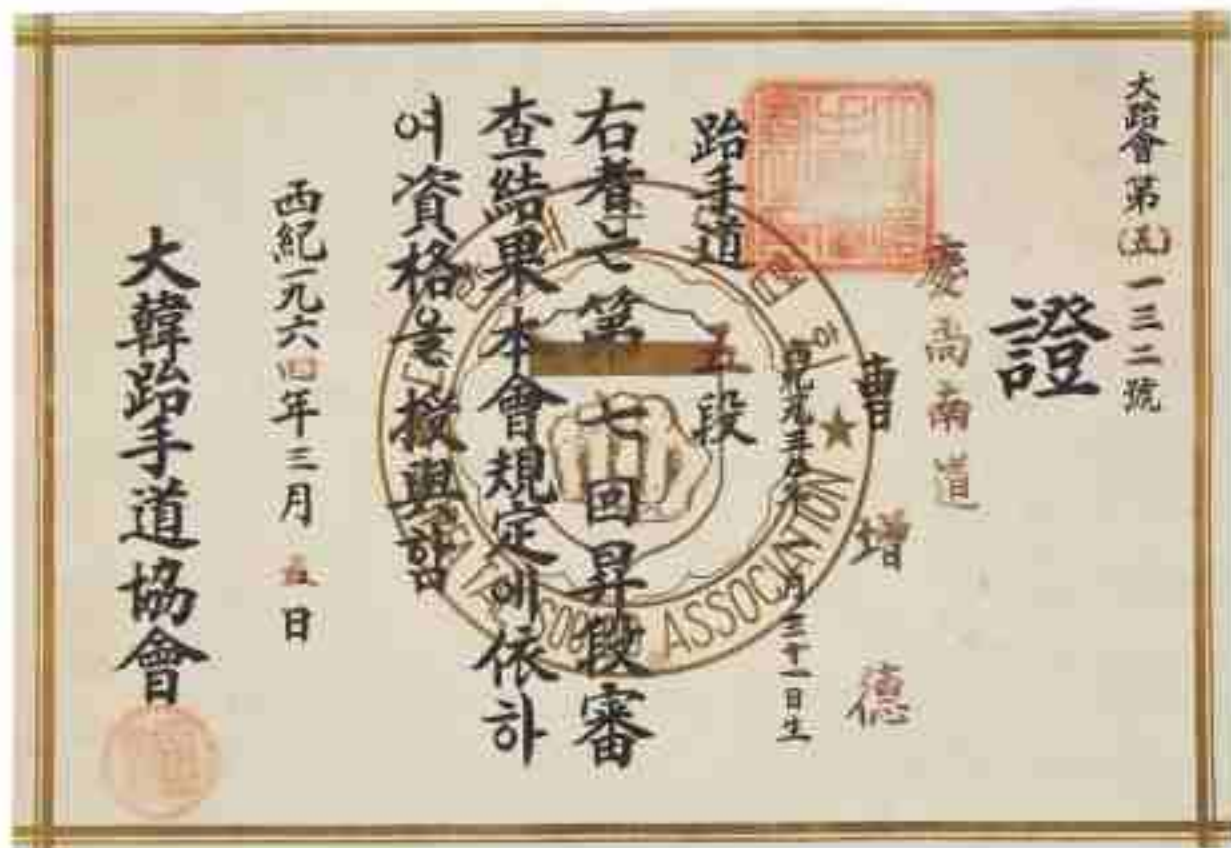 大跆會第(五)一三二號
證
慶尙南道
曹增德
月三十一日生
跆手道 五段
右者는第七回昇段審
査結果本會規定에依하
여資格을授與함
西紀一九六四年三月五日
大韓跆手道協會
ASSOCIATION